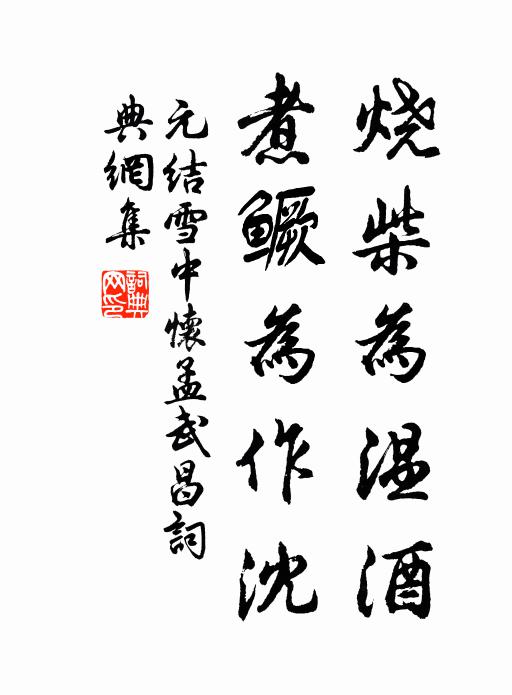 烧柴为温酒
煮鳜为作沈
元结雪中怀孟武昌詞
典網集
詞典
网印